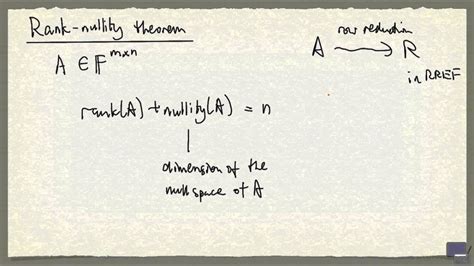 Rank-nullity theorem
A ∈ 𝔽^{m×n}
A ⟶ R
row reduction
in RREF
rank(A) + nullity(A) = n
dimension of the
null space of A